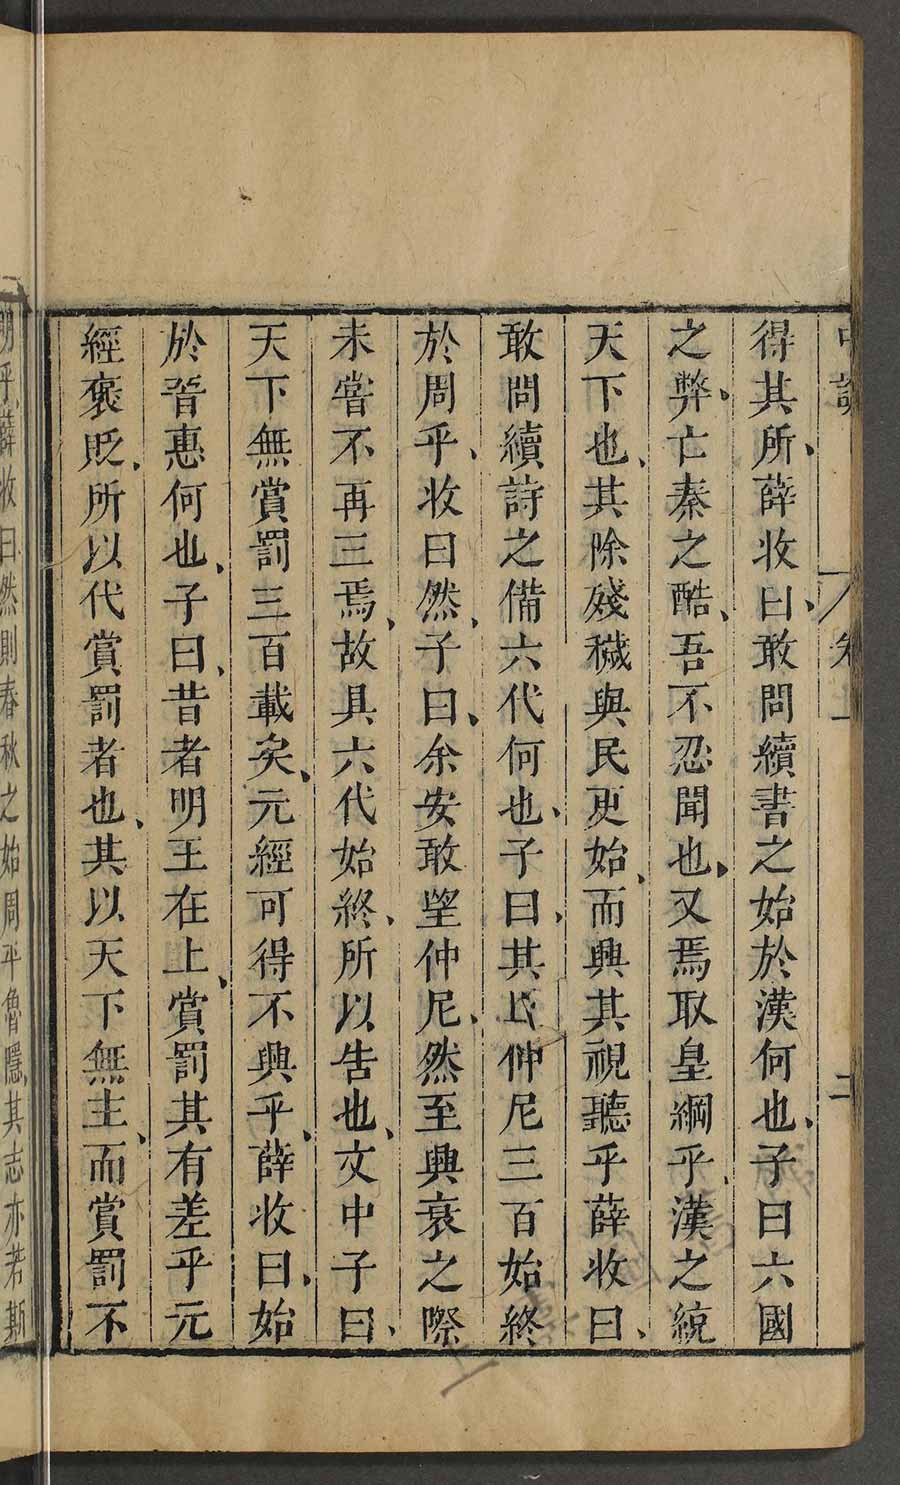 中說 卷一 二
得其所、薛收曰、敢問續書之始於漢何也、子曰六國
之弊、亡秦之酷、吾不忍聞也、又焉取皇綱乎、漢之統
天下也、其除殘穢與民更始、而興其視聽乎薛收曰、
敢問續詩之備六代何也、子曰、其以仲尼三百始終
於周乎、收曰然、子曰、余安敢望仲尼、然至興衰之際
未嘗不再三焉、故具六代始終、所以告也、文中子曰、
天下無賞罰三百載矣、元經可得不興乎、薛收曰、始
於晉惠何也、子曰、昔者明王在上、賞罰其有差乎元
經褒貶、所以代賞罰者也、其以天下無主、而賞罰不
明乎、薛收曰然則春秋之始周平魯隱、其志亦若斯